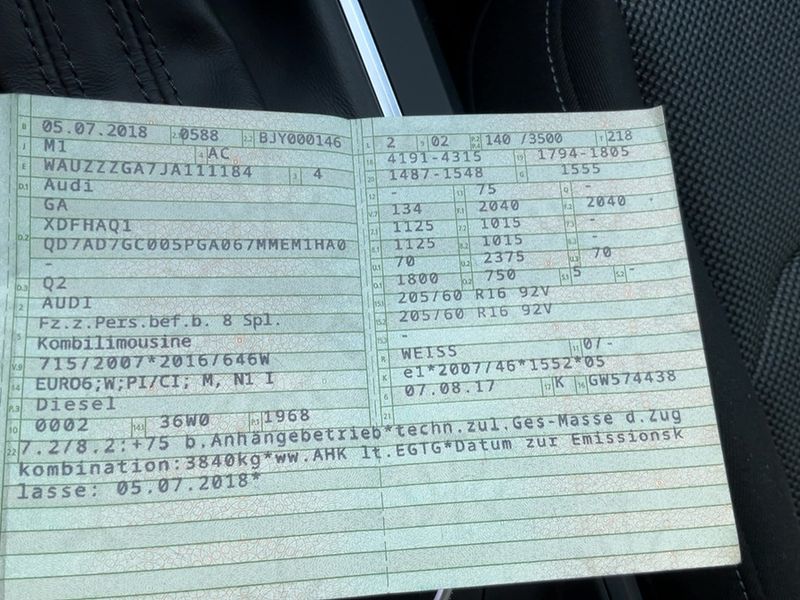 B 05.07.2018 2.1 0588 2.2 BJY000146
J M1 4 AC
E WAUZZZGA7JA111184 3 4
D.1 Audi
GA
XDFHAQ1
D.2 QD7AD7GC005PGA067MMEM1HA0
-
D.3 Q2
2 AUDI
Fz.z.Pers.bef.b. 8 Spl.
5 Kombilimousine
V.9 715/2007*2016/646W
14 EURO6;W;PI/CI; M, N1 I
P.3 Diesel
10 0002 14.1 36W0 P.1 1968
L 2 9 02 P.2 P.4 140 /3500 T 218
18 4191-4315 19 1794-1805
20 1487-1548 G 1555
12 - 13 75 Q -
V.7 134 F.1 2040 F.2 2040
7.1 1125 7.2 1015 7.3 -
8.1 1125 8.2 1015 8.3 -
U.1 70 U.2 2375 U.3 70
O.1 1800 O.2 750 S.1 5 S.2 -
15.1 205/60 R16 92V
15.2 205/60 R16 92V
15.3 -
R WEISS 11 0/-
K e1*2007/46*1552*05
6 07.08.17 17 K 16 GW574438
21
22 7.2/8.2:+75 b.Anhängebetrieb*techn.zul.Ges-Masse d.Zug
kombination:3840kg*ww.AHK lt.EGTG*Datum zur Emissionsk
lasse: 05.07.2018*